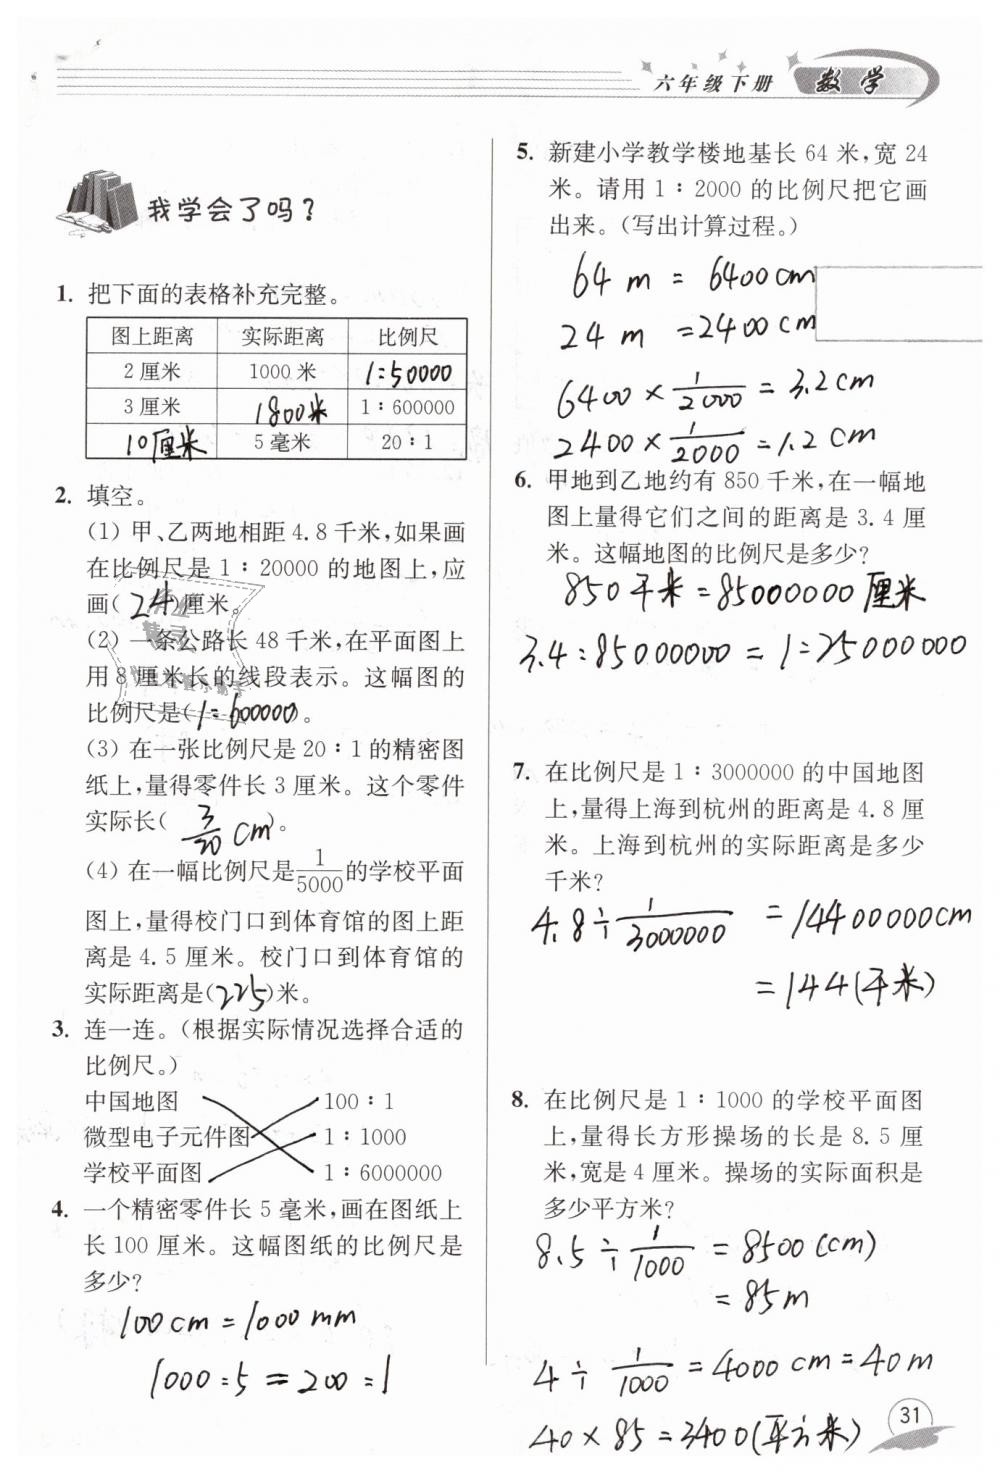 六年级下册 数学
我学会了吗?
1. 把下面的表格补充完整。
图上距离 实际距离 比例尺
2厘米 1000米 1:50000
3厘米 1800米 1:600000
10厘米 5毫米 20:1
2. 填空。
(1) 甲、乙两地相距4.8千米,如果画
在比例尺是1:20000的地图上,应
画(24)厘米。
(2) 一条公路长48千米,在平面图上
用8厘米长的线段表示。这幅图的
比例尺是(1:600000)。
(3) 在一张比例尺是20:1的精密图
纸上,量得零件长3厘米。这个零件
实际长(3/20 cm)。
(4) 在一幅比例尺是1/5000的学校平面
图上,量得校门口到体育馆的图上距
离是4.5厘米。校门口到体育馆的
实际距离是(225)米。
3. 连一连。(根据实际情况选择合适的
比例尺。)
中国地图 100:1
微型电子元件图 1:1000
学校平面图 1:6000000
4. 一个精密零件长5毫米,画在图纸上
长100厘米。这幅图纸的比例尺是
多少?
100cm=1000mm
1000:5=200:1
5. 新建小学教学楼地基长64米,宽24
米。请用1:2000的比例尺把它画
出来。(写出计算过程。)
64m=6400cm
24m=2400cm
6400×1/2000=3.2cm
2400×1/2000=1.2cm
6. 甲地到乙地约有850千米,在一幅地
图上量得它们之间的距离是3.4厘
米。这幅地图的比例尺是多少?
850千米=85000000厘米
3.4:85000000=1:25000000
7. 在比例尺是1:3000000的中国地图
上,量得上海到杭州的距离是4.8厘
米。上海到杭州的实际距离是多少
千米?
4.8÷1/3000000=14400000cm
=144(千米)
8. 在比例尺是1:1000的学校平面图
上,量得长方形操场的长是8.5厘
米,宽是4厘米。操场的实际面积是
多少平方米?
8.5÷1/1000=8500(cm)
=85m
4÷1/1000=4000cm=40m
40×85=3400(平方米)
31